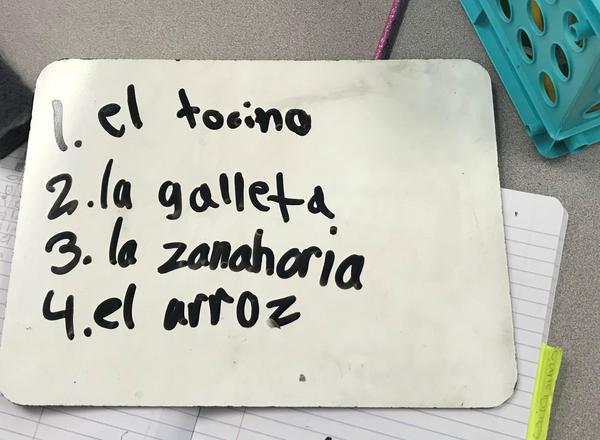 1. el tocino
2. la galleta
3. la zanahoria
4. el arroz